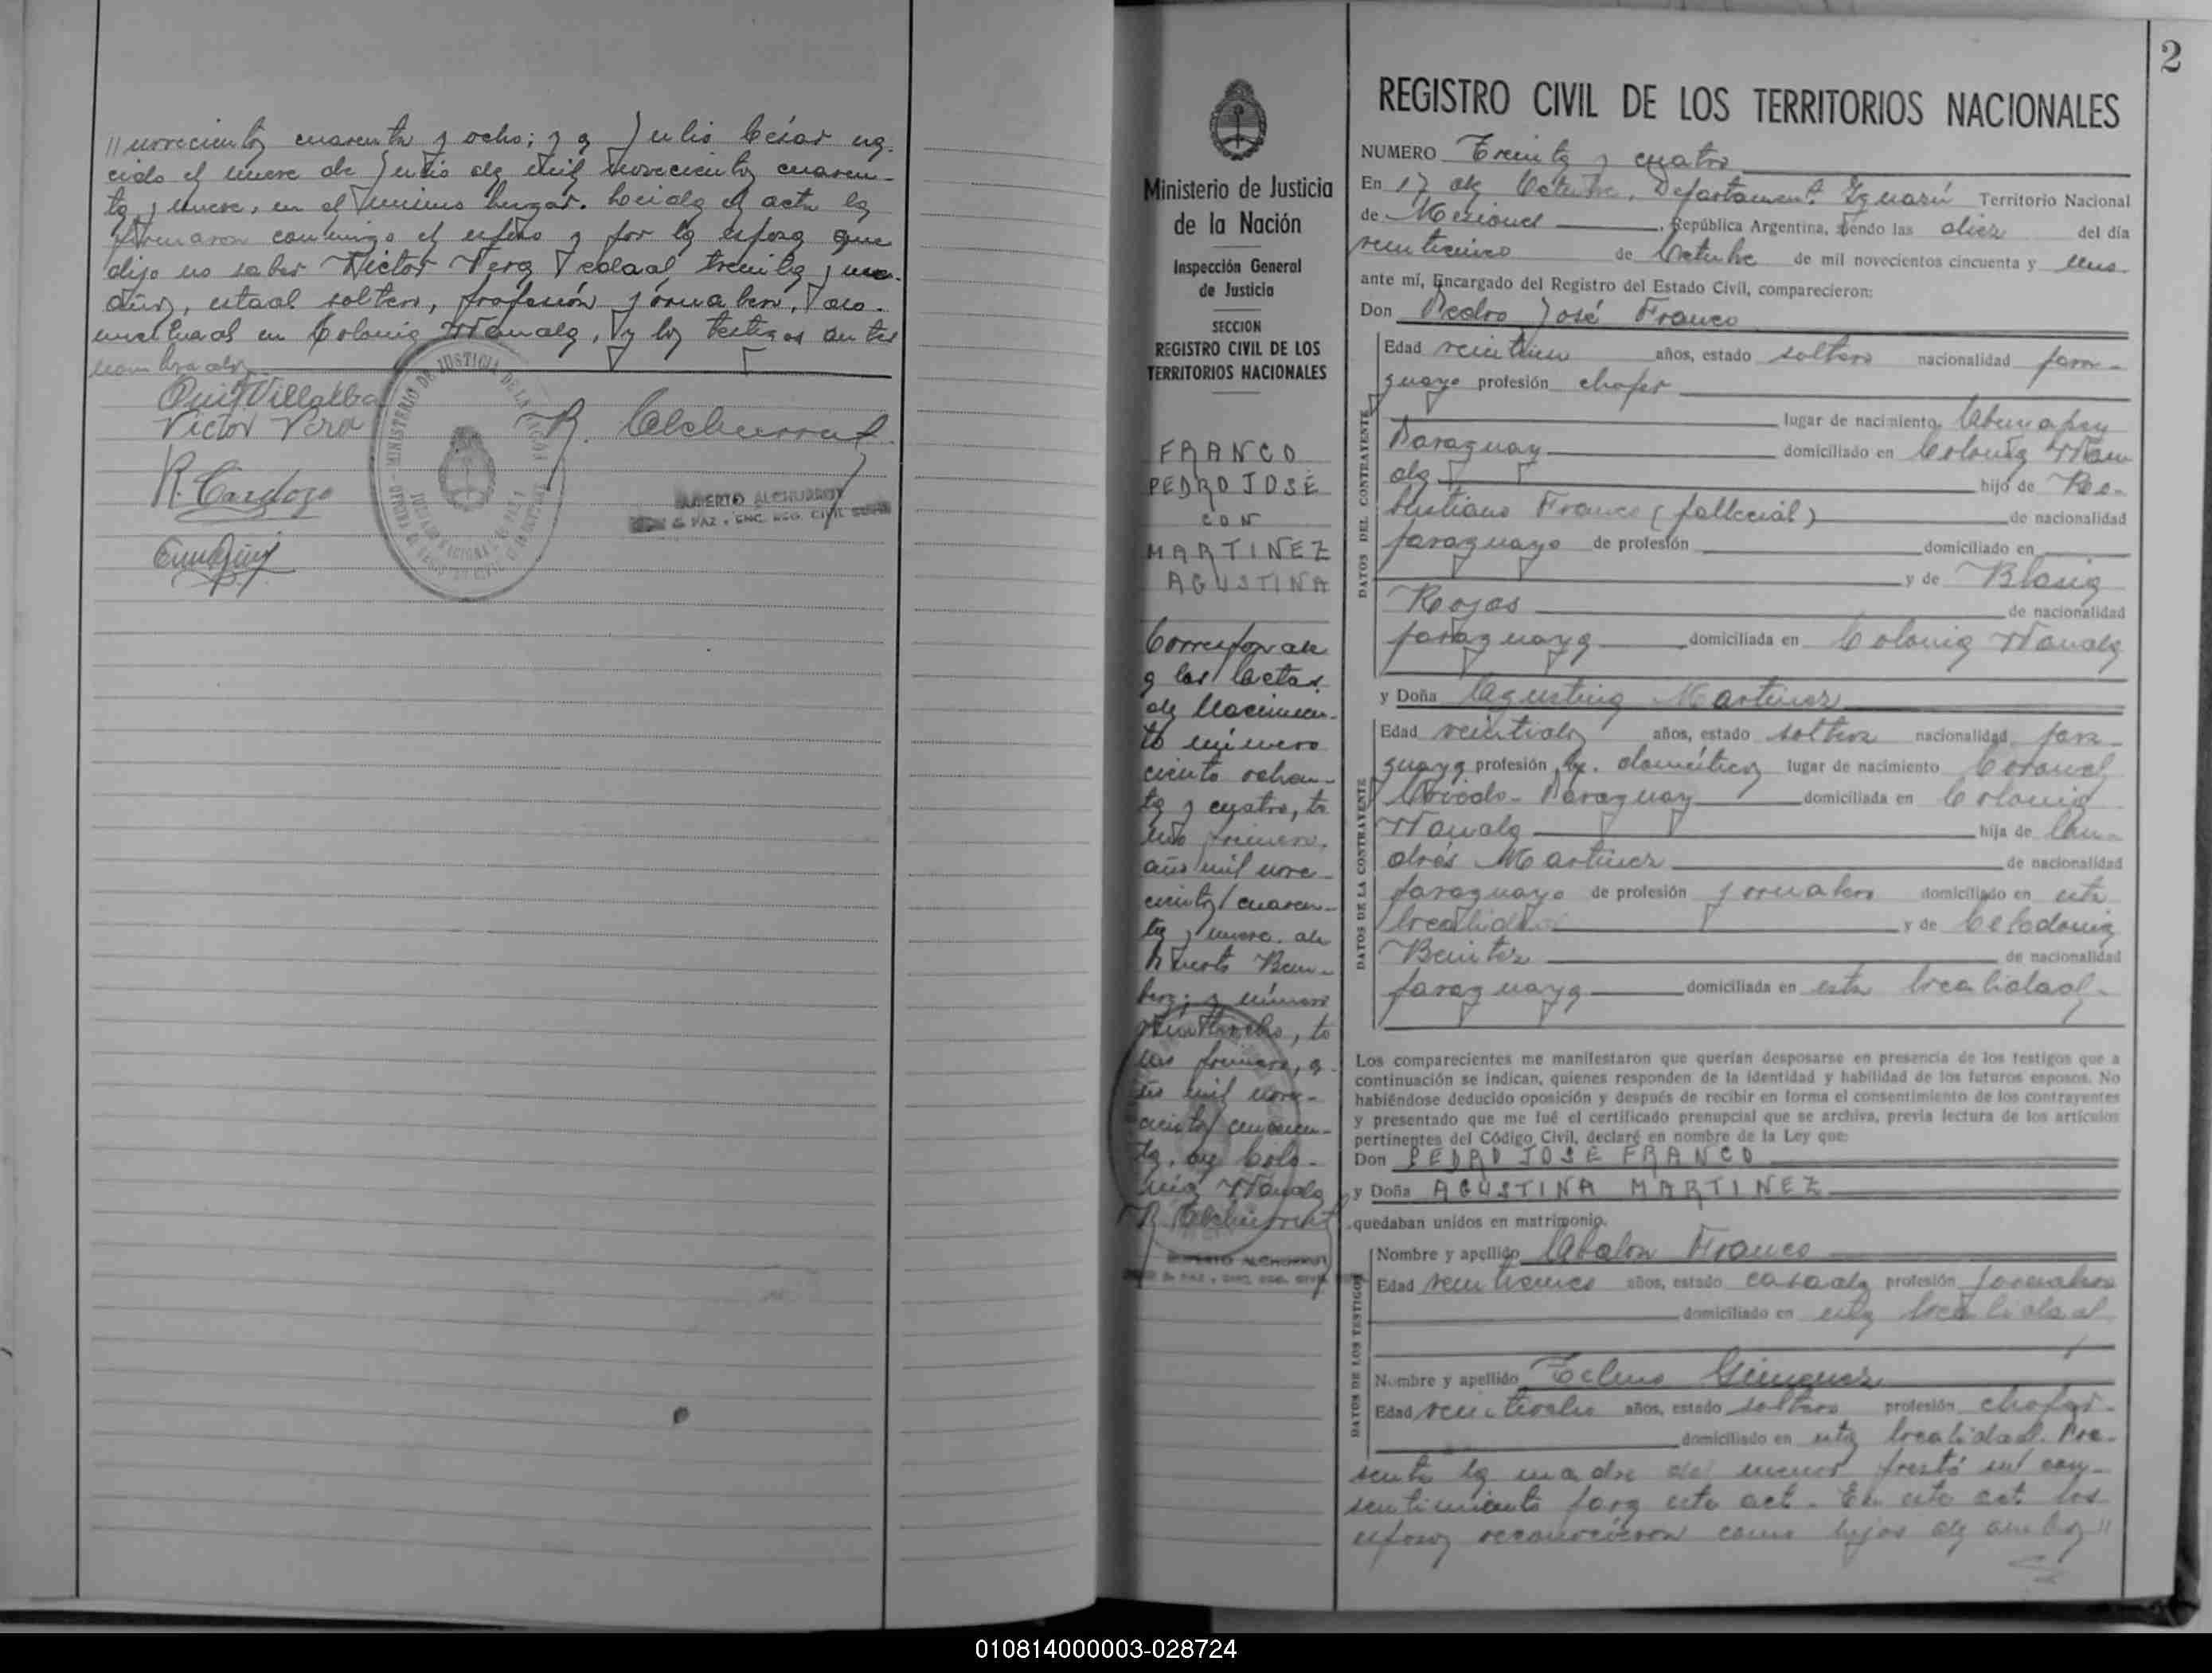 // novecientos cuarenta y ocho; y a Julio César na-
cido el nueve de Julio de mil novecientos cuaren-
ta y nueve, en el mismo lugar. Leida el acta la
firmaron conmigo el esposo y por la esposa que
dijo no saber Victor Vera edad treinta y un
años, estado soltero, profesión jornalero, do-
miciliado en Colonia Wanda, y los testigos antes
nombrados
Villalba
Victor Vera
R. Cardozo
R. Alchurrut
MINISTERIO DE JUSTICIA DE LA NACION
ALBERTO ALCHURRUT
DE PAZ, ENC. REG. CIVIL
2
Ministerio de Justicia
de la Nación
Inspección General
de Justicia
SECCION
REGISTRO CIVIL DE LOS
TERRITORIOS NACIONALES
FRANCO
PEDRO JOSÉ
CON
MARTINEZ
AGUSTINA
Corresponde
a las Actas
de Nacimien-
to número
ciento ochen-
ta y cuatro, to
mo primero,
año mil nove-
cientos cuaren-
ta y nueve, de
Puerto Bem-
berg; y número
veintiocho, to
mo primero, a
ño mil nove-
cientos cincuen-
ta, de Colo-
nia Wanda
R. Alchurrut
ALBERTO ALCHURRUT
DE PAZ, ENC. REG. CIVIL
REGISTRO CIVIL DE LOS TERRITORIOS NACIONALES
NUMERO Treinta y cuatro
En 17 de Octubre, Departamento Iguazú Territorio Nacional
de Misiones, República Argentina, siendo las diez del día
veinticinco de Octubre de mil novecientos cincuenta y uno
ante mí, Encargado del Registro del Estado Civil, comparecieron:
Don Pedro José Franco
DATOS DEL CONTRAYENTE
Edad años, estado soltero nacionalidad para-
guayo profesión chofer
lugar de nacimiento
Paraguay domiciliado en Colonia Wan
da hijo de
Franco (fallecido) de nacionalidad
paraguayo de profesión domiciliado en
y de Blasia
Rojas de nacionalidad
paraguaya domiciliada en Colonia Wanda
y Doña Agustina Martinez
DATOS DE LA CONTRAYENTE
Edad veintidos años, estado soltera nacionalidad para
guaya profesión q. domésticos lugar de nacimiento Coronel
Oviedo - Paraguay domiciliada en Colonia
Wanda hija de An-
drés Martinez de nacionalidad
paraguayo de profesión jornalero domiciliado en esta
localidad y de Celedonia
Benitez de nacionalidad
paraguaya domiciliada en esta localidad.
Los comparecientes me manifestaron que querían desposarse en presencia de los testigos que a
continuación se indican, quienes responden de la identidad y habilidad de los futuros esposos. No
habiéndose deducido oposición y después de recibir en forma el consentimiento de los contrayentes
y presentado que me fué el certificado prenupcial que se archiva, previa lectura de los artículos
pertinentes del Código Civil, declaré en nombre de la Ley que:
Don PEDRO JOSE FRANCO
y Doña AGUSTINA MARTINEZ
quedaban unidos en matrimonio.
DATOS DE LOS TESTIGOS
Nombre y apellido Abalon Franco
Edad veinticinco años, estado casado profesión jornalero
domiciliado en esta localidad
Nombre y apellido Telmo Gimenez
Edad veintiocho años, estado soltero profesión chofer.
domiciliado en esta localidad. Pre-
sente la madre del menor prestó su con-
sentimiento para este acto. En este acto los
esposos reconocieron como hijos de ambos //
010814000003-028724